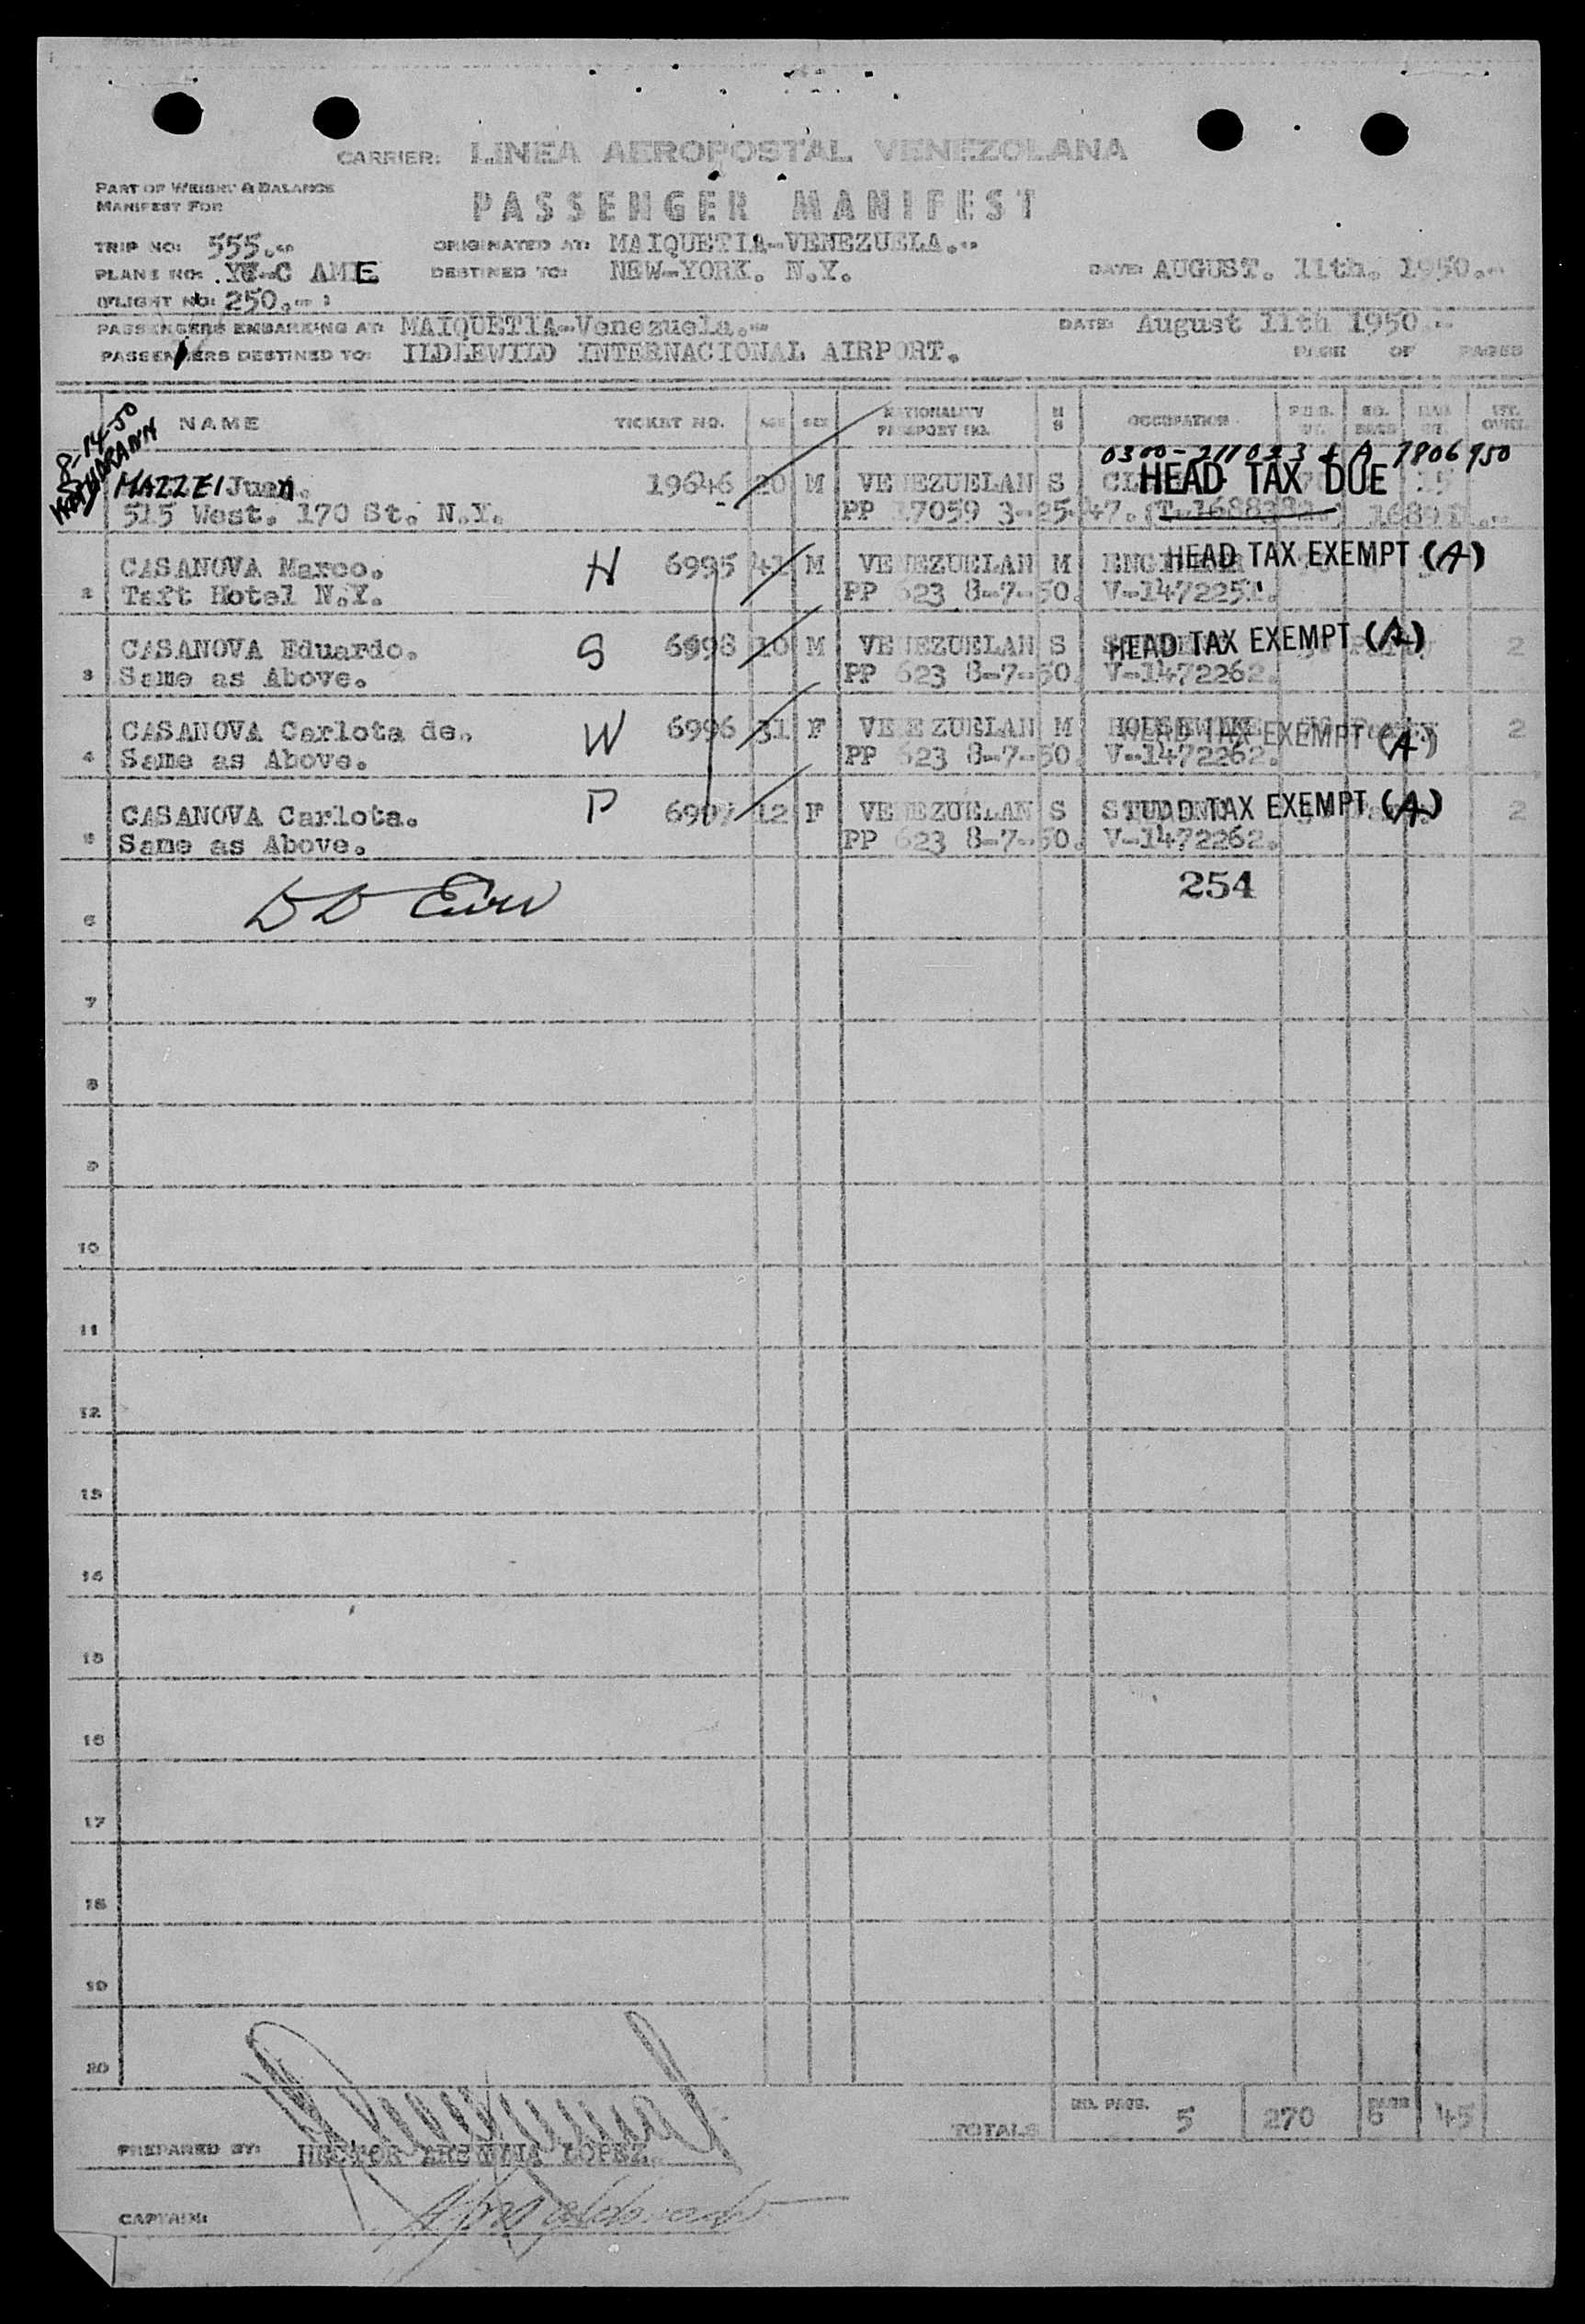 CARRIER: LINEA AEROPOSTAL VENEZOLANA
PART OF WEIGHT & BALANCE
MANIFEST FOR
PASSENGER MANIFEST
TRIP NO: 555.-
ORIGINATED AT: MAIQUETIA-VENEZUELA.-
PLANE NO: YV-C AME
DESTINED TO: NEW-YORK. N.Y.
DATE: AUGUST. 11th. 1950.-
FLIGHT NO: 250.-
PASSENGERS EMBARKING AT: MAIQUETIA-Venezuela.-
DATE: August 11th 1950.-
PASSENGERS DESTINED TO: ILDLEWILD INTERNACIONAL AIRPORT.
PAGE OF PAGES
NAME TICKET NO. AGE SEX NATIONALITY PASSPORT NO. M S OCCUPATION
8-14-50
0300-211033 & A 7806950
MAZZEI Juan. 19646 20 M VENEZUELAN S HEAD TAX DUE 15
515 West. 170 St. N.Y. PP 17059 3-25-47.
CASANOVA Marco. H 6995 41 M VENEZUELAN M HEAD TAX EXEMPT (A)
2 Taft Hotel N.Y. PP 623 8-7-50. V-1472251.
CASANOVA Eduardo. S 6998 10 M VENEZUELAN S HEAD TAX EXEMPT (A) 2
3 Same as Above. PP 623 8-7-50. V-1472262.
CASANOVA Carlota de. W 6996 31 F VENEZUELAN M HOUSEWIFE HEAD TAX EXEMPT (A) 2
4 Same as Above. PP 623 8-7-50. V-1472262.
CASANOVA Carlota. D 6997 12 F VENEZUELAN S STUDENT HEAD TAX EXEMPT (A) 2
5 Same as Above. PP 623 8-7-50. V-1472262.
254
6
7
8
9
10
11
12
13
14
15
16
17
18
19
20
TOTALS NO. PASS. 5 270 BAGS 6 45
PREPARED BY: HECTOR LOPEZ.
CAPTAIN: